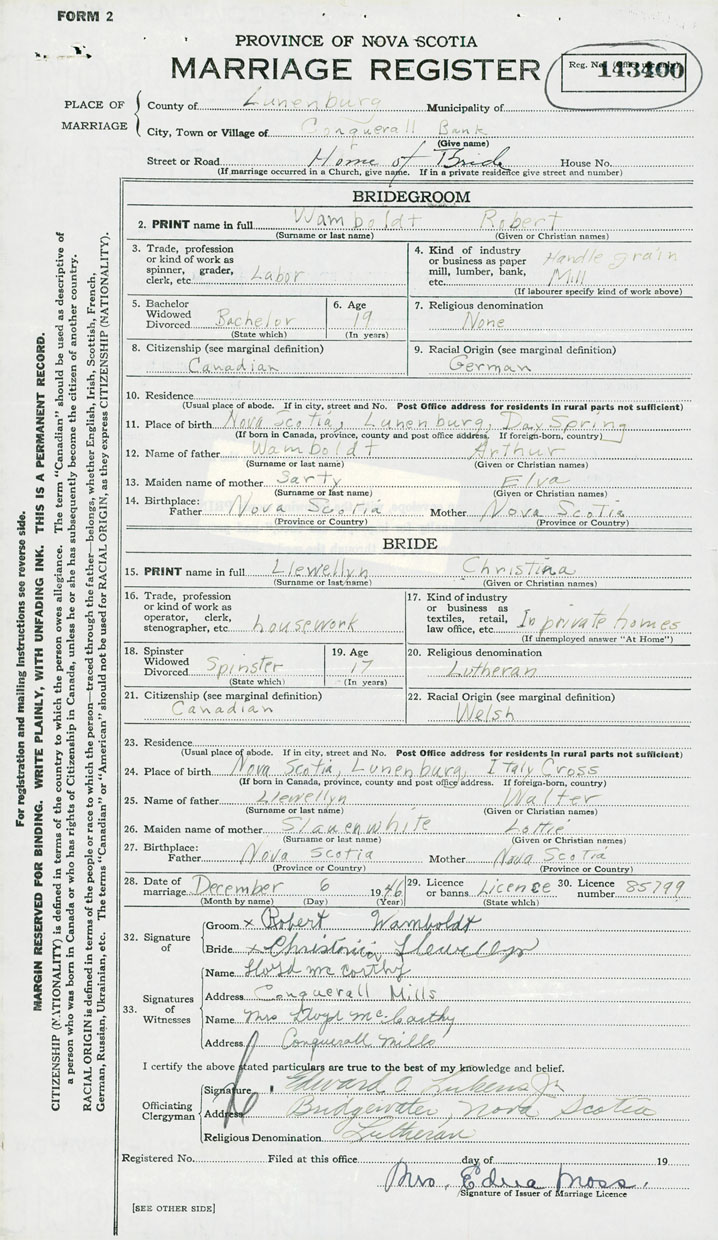 FORM 2
PROVINCE OF NOVA SCOTIA
MARRIAGE REGISTER
Reg. No. (Office use only)
143400
PLACE OF MARRIAGE
County of Lunenburg Municipality of
City, Town or Village of Conquerall Bank
(Give name)
Street or Road Home of Bride House No.
(If marriage occurred in a Church, give name. If in a private residence give street and number)
BRIDEGROOM
2. PRINT name in full Wamboldt Robert
(Surname or last name) (Given or Christian names)
3. Trade, profession or kind of work as spinner, grader, clerk, etc. Labor
4. Kind of industry or business as paper mill, lumber, bank, etc. Handle grain Mill
(If labourer specify kind of work above)
5. Bachelor Widowed Divorced Bachelor
(State which)
6. Age 19
(In years)
7. Religious denomination
None
8. Citizenship (see marginal definition)
Canadian
9. Racial Origin (see marginal definition)
German
10. Residence
(Usual place of abode. If in city, street and No. Post Office address for residents in rural parts not sufficient)
11. Place of birth Nova Scotia, Lunenburg, Day Spring
(If born in Canada, province, county and post office address. If foreign-born, country)
12. Name of father Wamboldt Arthur
(Surname or last name) (Given or Christian names)
13. Maiden name of mother Sarty Elva
(Surname or last name) (Given or Christian names)
14. Birthplace: Father Nova Scotia Mother Nova Scotia
(Province or Country) (Province or Country)
BRIDE
15. PRINT name in full Llewellyn Christina
(Surname or last name) (Given or Christian names)
16. Trade, profession or kind of work as operator, clerk, stenographer, etc. housework
17. Kind of industry or business as textiles, retail, law office, etc. In private homes
(If unemployed answer "At Home")
18. Spinster Widowed Divorced Spinster
(State which)
19. Age 17
(In years)
20. Religious denomination
Lutheran
21. Citizenship (see marginal definition)
Canadian
22. Racial Origin (see marginal definition)
Welsh
23. Residence
(Usual place of abode. If in city, street and No. Post Office address for residents in rural parts not sufficient)
24. Place of birth Nova Scotia, Lunenburg, Italy Cross
(If born in Canada, province, county and post office address. If foreign-born, country)
25. Name of father Llewellyn Walter
(Surname or last name) (Given or Christian names)
26. Maiden name of mother Slauenwhite Lottie
(Surname or last name) (Given or Christian names)
27. Birthplace: Father Nova Scotia Mother Nova Scotia
(Province or Country) (Province or Country)
28. Date of marriage December 6 1946
(Month by name) (Day) (Year)
29. Licence or banns License
(State which)
30. Licence number 85799
32. Signature of
Groom x Robert Wamboldt
Bride x Llewellyn
33. Signatures of Witnesses
Name Floyd McCarthy
Address Conquerall Mills
Name Mrs Floyd McCarthy
Address Conquerall Mills
I certify the above stated particulars are true to the best of my knowledge and belief.
Officiating Clergyman
Signature Edward O. Lukens Jr
Address Bridgewater, Nova Scotia
Religious Denomination Lutheran
Registered No. Filed at this office day of 19
Mrs. Edna Moss.
Signature of Issuer of Marriage Licence
[SEE OTHER SIDE]
For registration and mailing instructions see reverse side.
MARGIN RESERVED FOR BINDING. WRITE PLAINLY, WITH UNFADING INK. THIS IS A PERMANENT RECORD.
CITIZENSHIP (NATIONALITY) is defined in terms of the country to which the person owes allegiance. The term "Canadian" should be used as descriptive of
a person who was born in Canada or who has rights of Citizenship in Canada, unless he or she has subsequently become the citizen of another country.
RACIAL ORIGIN is defined in terms of the people or race to which the person—traced through the father—belongs, whether English, Irish, Scottish, French,
German, Russian, Ukrainian, etc. The terms "Canadian" or "American" should not be used for RACIAL ORIGIN, as they express CITIZENSHIP (NATIONALITY).